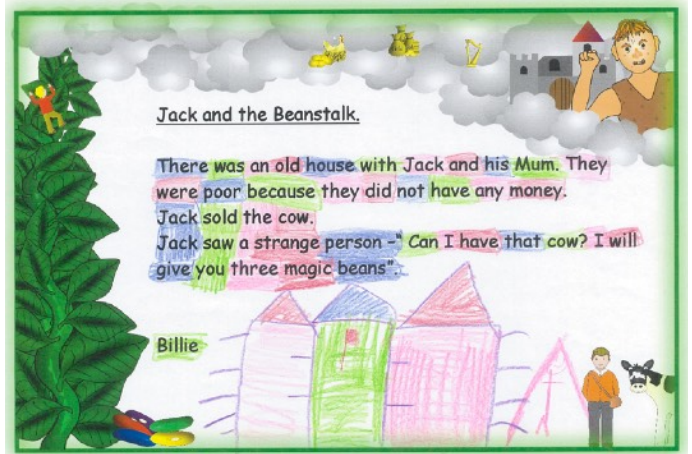 Jack and the Beanstalk.
There was an old house with Jack and his Mum. They
were poor because they did not have any money.
Jack sold the cow.
Jack saw a strange person -" Can I have that cow? I will
give you three magic beans".
Billie